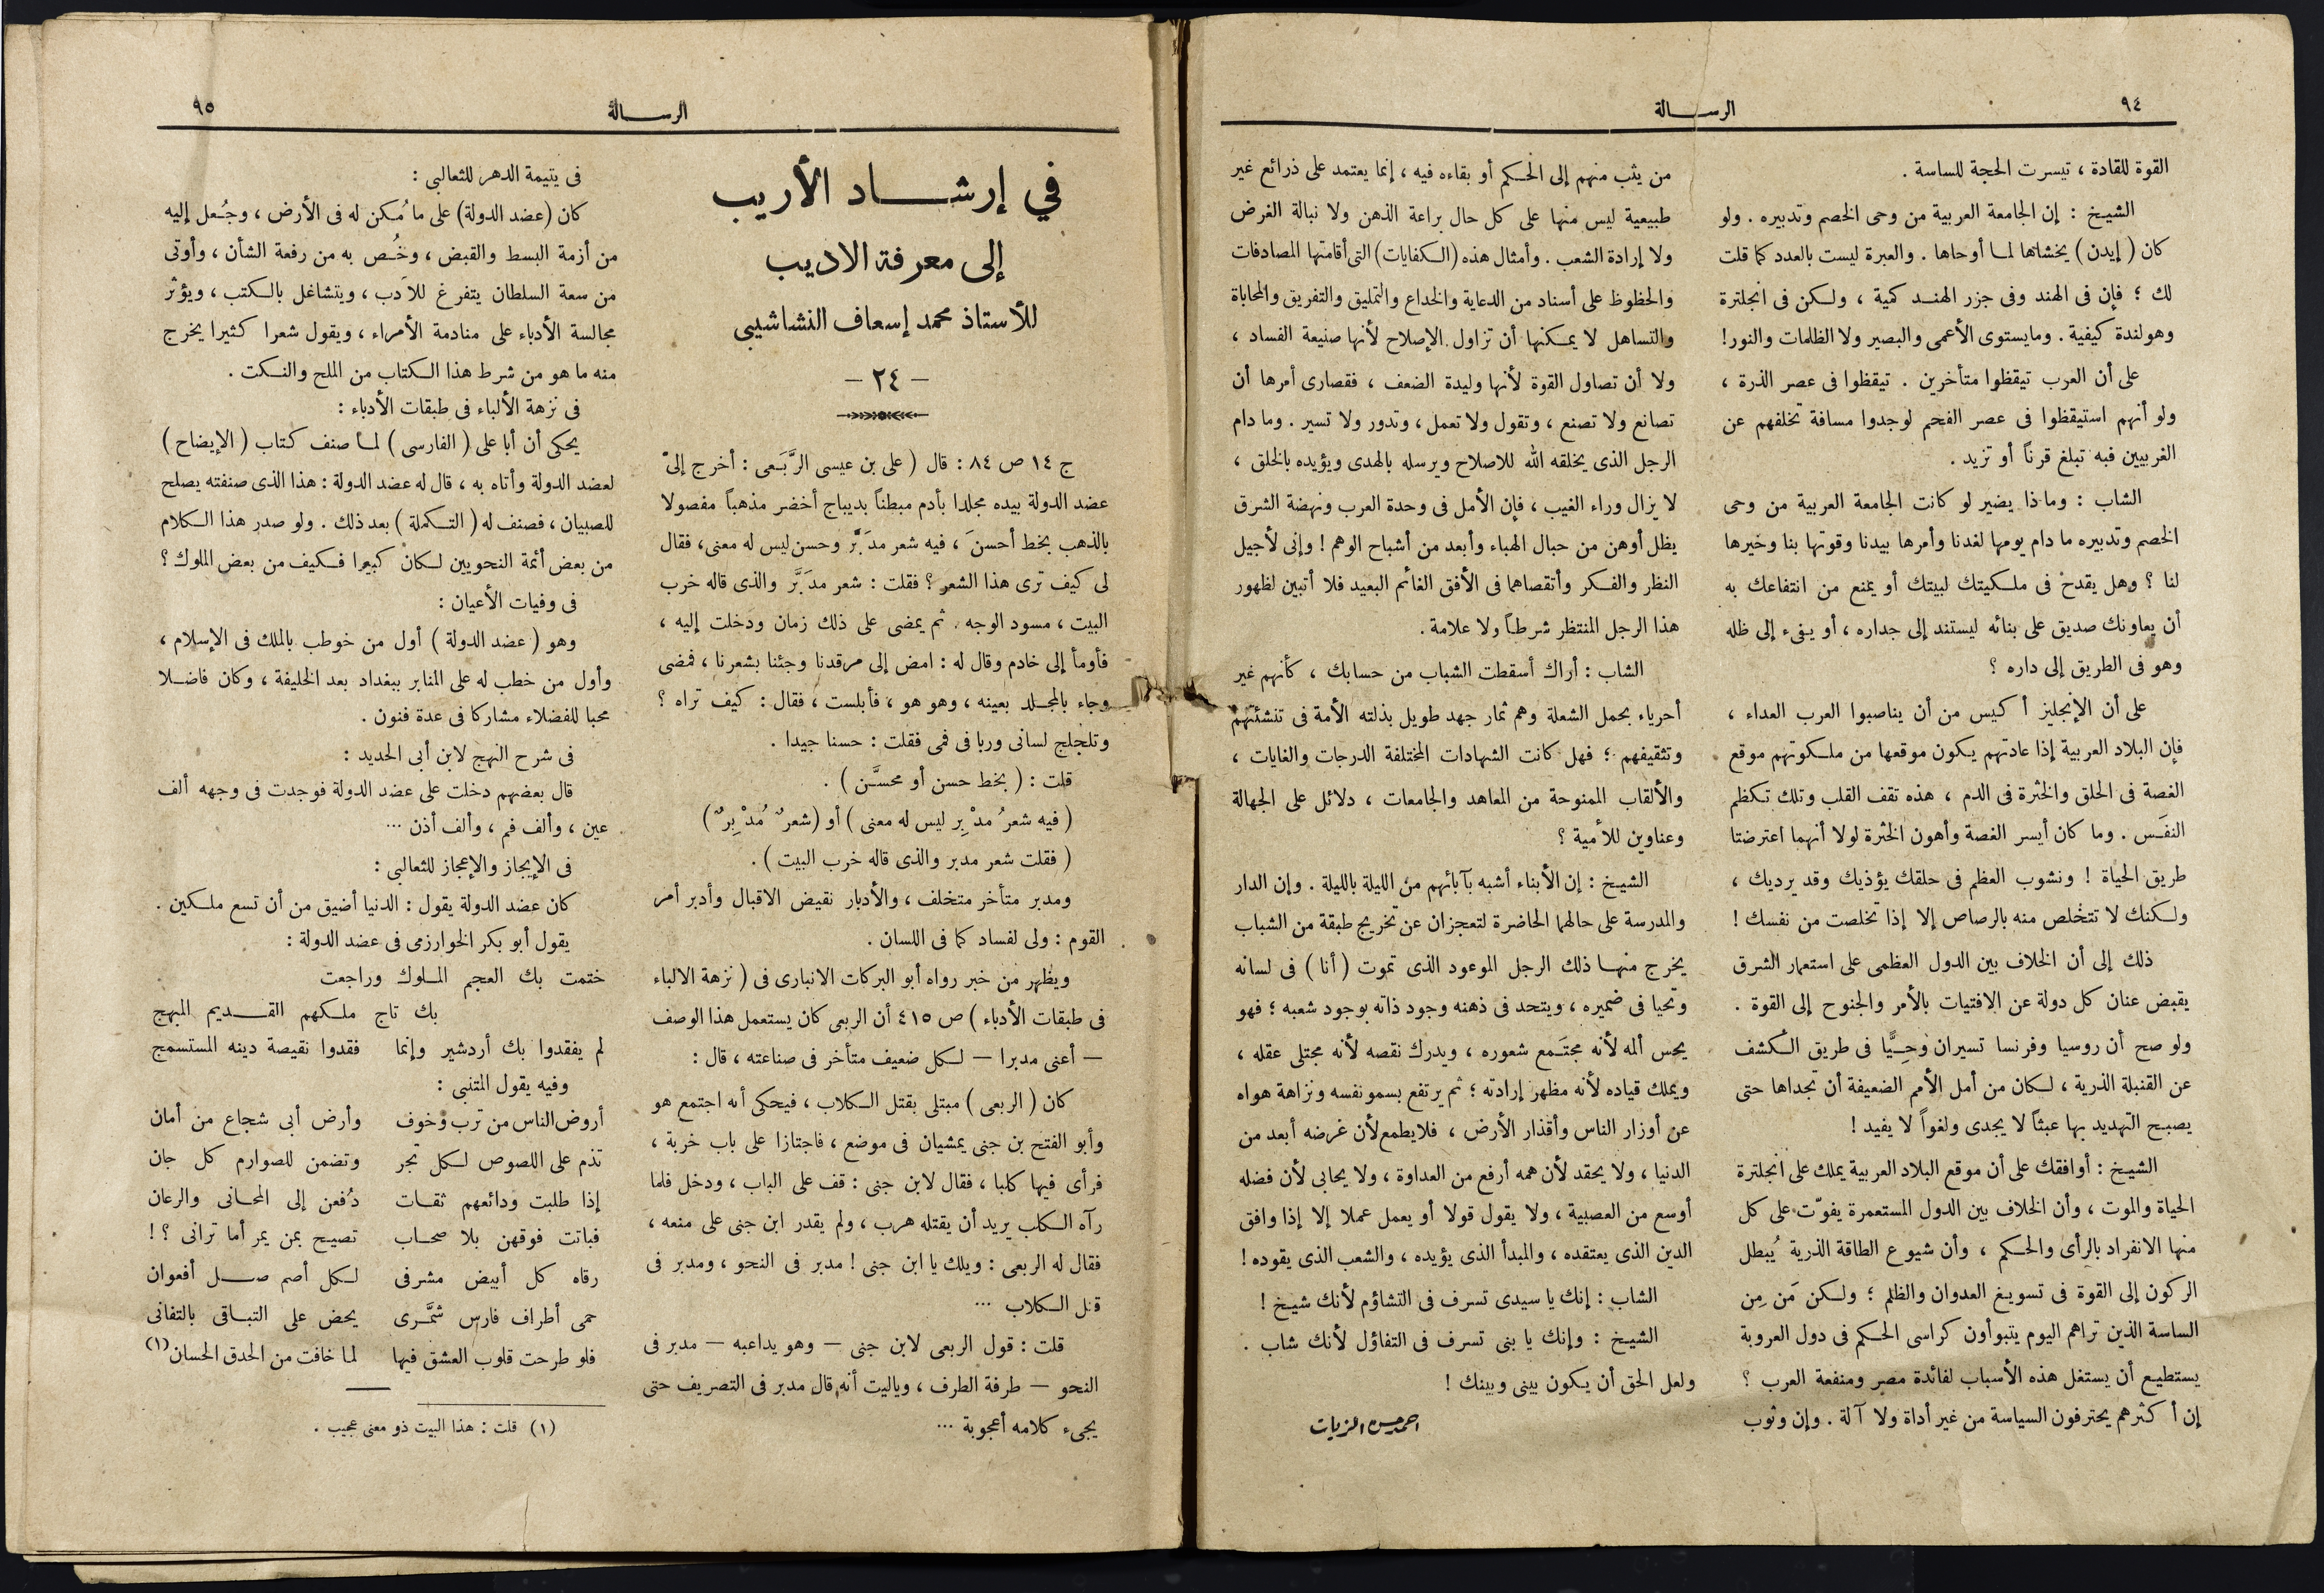 ٩٤
الرسالة
القوة للقادة ، تيسرت الحجة للساسة .
الشيخ : إن الجامعة العربية من وحى الخصم وتدبيره . ولو
كان ( إيدن ) يخشاها لما أوحاها . والعبرة ليست بالعدد كما قلت
لك ؛ فإن فى الهند وفى جزر الهند كمية ، ولكن فى انجلترة
وهولندة كيفية . وما يستوى الأعمى والبصير ولا الظلمات والنور !
على أن العرب تيقظوا متأخرين . تيقظوا فى عصر الذرة ،
ولو أنهم استيقظوا فى عصر الفحم لوجدوا مسافة تخلفهم عن
الغربيين فيه تبلغ قرناً أو تزيد .
الشاب : وماذا يضير لو كانت الجامعة العربية من وحى
الخصم وتدبيره ما دام يومها لغدنا وأمرها بيدنا وقوتها بنا وخيرها
لنا ؟ وهل يقدح فى ملكيتك لبيتك أو يمنع من انتفاعك به
أن يعاونك صديق على بنائه ليستند إلى جداره ، أو يفىء إلى ظله
وهو فى الطريق إلى داره ؟
على أن الإنجليز أكيس من أن يناصبوا العرب العداء ،
فإن البلاد العربية إذا عادتهم يكون موقعها من ملكوتهم موقع
الغصة فى الحلق والخثرة فى الدم ، هذه تقف القلب وتلك تكظم
النفَس . وما كان أيسر الغصة وأهون الخثرة لولا أنهما اعترضتا
طريق الحياة ! ونشوب العظم فى حلقك يؤذيك وقد يرديك ،
ولكنك لا تتخلص منه بالرصاص إلا إذا تخلصت من نفسك !
ذلك إلى أن الخلاف بين الدول العظمى على استعمار الشرق
يقبض عنان كل دولة عن الافتيات بالأمر والجنوح إلى القوة .
ولو صح أن روسيا وفرنسا تسيران وحِيًّا فى طريق الكشف
عن القنبلة الذرية ، لكان من أمل الأمم الضعيفة أن تجداها حتى
يصبح التهديد بها عبثاً لا يجدى ولغواً لا يفيد !
الشيخ : أوافقك على أن موقع البلاد العربية يملك على انجلترة
الحياة والموت ، وأن الخلاف بين الدول المستعمرة يفوّت على كل
منها الانفراد بالرأى والحكم ، وأن شيوع الطاقة الذرية يُبطل
الركون إلى القوة فى تسويغ العدوان والظلم ؛ ولكن مَن مِن
الساسة الذين تراهم اليوم يتبوأون كراسى الحكم فى دول العروبة
يستطيع أن يستغل هذه الأسباب لفائدة مصر ومنفعة العرب ؟
إن أكثرهم يحترفون السياسة من غير أداة ولا آلة . وإن وثوب
من يثب منهم إلى الحكم أو بقاءه فيه ، إنما يعتمد على ذرائع غير
طبيعية ليس منها على كل حال براعة الذهن ولا نبالة الغرض
ولا إرادة الشعب . وأمثال هذه (الكفايات) التى أقامتها المصادفات
والحظوظ على أسناد من الدعاية والخداع والتمليق والتفريق والمحاباة
والتساهل لا يمكنها أن تزاول الإصلاح لأنها صنيعة الفساد ،
ولا أن تصاول القوة لأنها وليدة الضعف ، فقصارى أمرها أن
تصانع ولا تصنع ، وتقول ولا تعمل ، وتدور ولا تسير . وما دام
الرجل الذى يخلقه الله للاصلاح ويرسله بالهدى ويؤيده بالخلق ،
لا يزال وراء الغيب ، فإن الأمل فى وحدة العرب ونهضة الشرق
يظل أوهن من حبال الهباء وأبعد من أشباح الوهم ! وإنى لأجيل
النظر والفكر وأتقصاهما فى الأفق الغائم البعيد فلا أتبين لظهور
هذا الرجل المنتظر شرطاً ولا علامة .
الشاب : أراك أسقطت الشباب من حسابك ، كأنهم غير
أحرياء بحمل الشعلة وهم ثمار جهد طويل بذلته الأمة فى تنشئتهم
وتثقيفهم ؛ فهل كانت الشهادات المختلفة الدرجات والغايات ،
والألقاب الممنوحة من المعاهد والجامعات ، دلائل على الجهالة
وعناوين للأمية ؟
الشيخ : إن الأبناء أشبه بآبائهم من الليلة بالليلة . وإن الدار
والمدرسة على حالهما الحاضرة لتعجزان عن تخريج طبقة من الشباب
يخرج منها ذلك الرجل الموعود الذى تموت ( أنا ) فى لسانه
وتحيا فى ضميره ، ويتحد فى ذهنه وجود ذاته بوجود شعبه ؛ فهو
يحس ألمه لأنه مجتَمع شعوره ، ويدرك نقصه لأنه مجتلى عقله ،
ويملك قياده لأنه مظهر إرادته ؛ ثم يرتفع بسمو نفسه ونزاهة هواه
عن أوزار الناس وأقذار الأرض ، فلا يطمع لأن غرضه أبعد من
الدنيا ، ولا يحقد لأن همه أرفع من العداوة ، ولا يحابى لأن فضله
أوسع من العصبية ، ولا يقول قولا أو يعمل عملا إلا إذا وافق
الدين الذى يعتقده ، والمبدأ الذى يؤيده ، والشعب الذى يقوده !
الشاب : إنك يا سيدى تسرف فى التشاؤم لأنك شيخ !
الشيخ : وإنك يا بنى تسرف فى التفاؤل لأنك شاب .
ولعل الحق أن يكون بينى وبينك !
احمد حسن الزيات
الرسالة
٩٥
في إرشاد الأريب
إلى معرفة الاديب
للأستاذ محمد إسعاف النشاشيبى
— ٢٤ —
ج ١٤ ص ٨٤ : قال ( على بن عيسى الرَّبَعى : أخرج إلىّ
عضد الدولة بيده مجلدا بأدم مبطناً بديباج أخضر مذهباً مفصولا
بالذهب بخط أحسنَ ، فيه شعر مدَبَّر وحسن ليس له معنى، فقال
لى كيف ترى هذا الشعر ؟ فقلت : شعر مدَبَّر والذى قاله خرب
البيت ، مسود الوجه . ثم يمضى على ذلك زمان ودخلت إليه ،
فأومأ إلى خادم وقال له : امض إلى مرقدنا وجئنا بشعرنا ، فمضى
وجاء بالمجلد بعينه ، وهو هو ، فأبلست ، فقال : كيف تراه ؟
وتلجلج لسانى وربا فى فمى فقلت : حسنا جيدا .
قلت : ( بخط حسن أو محسَّن ) .
( فيه شعرُ مدْبِر ليس له معنى ) أو (شعرٌ مُدْبِرٌ)
( فقلت شعر مدبر والذى قاله خرب البيت ) .
ومدبر متأخر متخلف ، والأدبار نقيض الاقبال وأدبر أمر
القوم : ولى لفساد كما فى اللسان .
ويظهر من خبر رواه أبو البركات الانبارى فى ( نزهة الالباء
فى طبقات الأدباء ) ص ٤١٥ أن الربعى كان يستعمل هذا الوصف
— أعنى مدبرا — لكل ضعيف متأخر فى صناعته ، قال :
كان ( الربعى ) مبتلى بقتل الكلاب ، فيحكى أنه اجتمع هو
وأبو الفتح بن جنى يمشيان فى موضع ، فاجتازا على باب خربة ،
فرأى فيها كلبا ، فقال لابن جنى : قف على الباب ، ودخل فلما
رآه الكلب يريد أن يقتله هرب ، ولم يقدر ابن جنى على منعه ،
فقال له الربعى : ويلك يا ابن جنى ! مدبر فى النحو ، ومدبر فى
قتل الكلاب ...
قلت : قول الربعى لابن جنى — وهو يداعبه — مدبر فى
النحو — طرفة الطرف ، وياليت أنه قال مدبر فى التصريف حتى
يجىء كلامه أعجوبة ...
فى يتيمة الدهر للثعالبى :
كان (عضد الدولة) على ما مُكن له فى الأرض ، وجُعل إليه
من أزمة البسط والقبض ، وخُص به من رفعة الشأن ، وأوتى
من سعة السلطان يتفرغ للأدب ، ويتشاغل بالكتب ، ويؤثر
مجالسة الأدباء على منادمة الأمراء ، ويقول شعرا كثيرا يخرج
منه ما هو من شرط هذا الكتاب من الملح والنكت .
فى نزهة الألباء فى طبقات الأدباء :
يحكى أن أبا على ( الفارسى ) لما صنف كتاب ( الإيضاح )
لعضد الدولة وأتاه به ، قال له عضد الدولة : هذا الذى صنفته يصلح
للصبيان ، فصنف له ( التكملة ) بعد ذلك . ولو صدر هذا الكلام
من بعض أئمة النحويين لكان كبيرا فكيف من بعض الملوك ؟
فى وفيات الأعيان :
وهو ( عضد الدولة ) أول من خوطب بالملك فى الإسلام ،
وأول من خطب له على المنابر ببغداد بعد الخليفة ، وكان فاضلا
محبا للفضلاء مشاركا فى عدة فنون .
فى شرح النهج لابن أبى الحديد :
قال بعضهم دخلت على عضد الدولة فوجدت فى وجهه ألف
عين ، وألف فم ، وألف أذن ...
فى الإيجاز والإعجاز للثعالبى :
كان عضد الدولة يقول : الدنيا أضيق من أن تسع ملكين .
يقول أبو بكر الخوارزمى فى عضد الدولة :
ختمت بك العجم الملوك وراجعت
بك تاج ملكهم القديم المبهج
لم يفقدوا بك أردشير وإنما فقدوا نقيصة دينه المستسمج
وفيه يقول المتنبى :
أروض الناس من ترب وخوف وأرض أبى شجاع من أمان
تذم على اللصوص لكل تجر وتضمن للصوارم كل جان
إذا طلبت ودائعهم ثقات دُفعن إلى المحانى والرعان
فباتت فوقهن بلا صحاب تصيح بمن يمر أما ترانى ؟ !
رقاه كل أبيض مشرفى لكل أصم صل أفعوان
حمى أطراف فارس شمَّرى يحض على التباقى بالتفانى
فلو طرحت قلوب العشق فيها لما خافت من الحدق الحسان (١)
(١) قلت : هذا البيت ذو معنى عجيب .